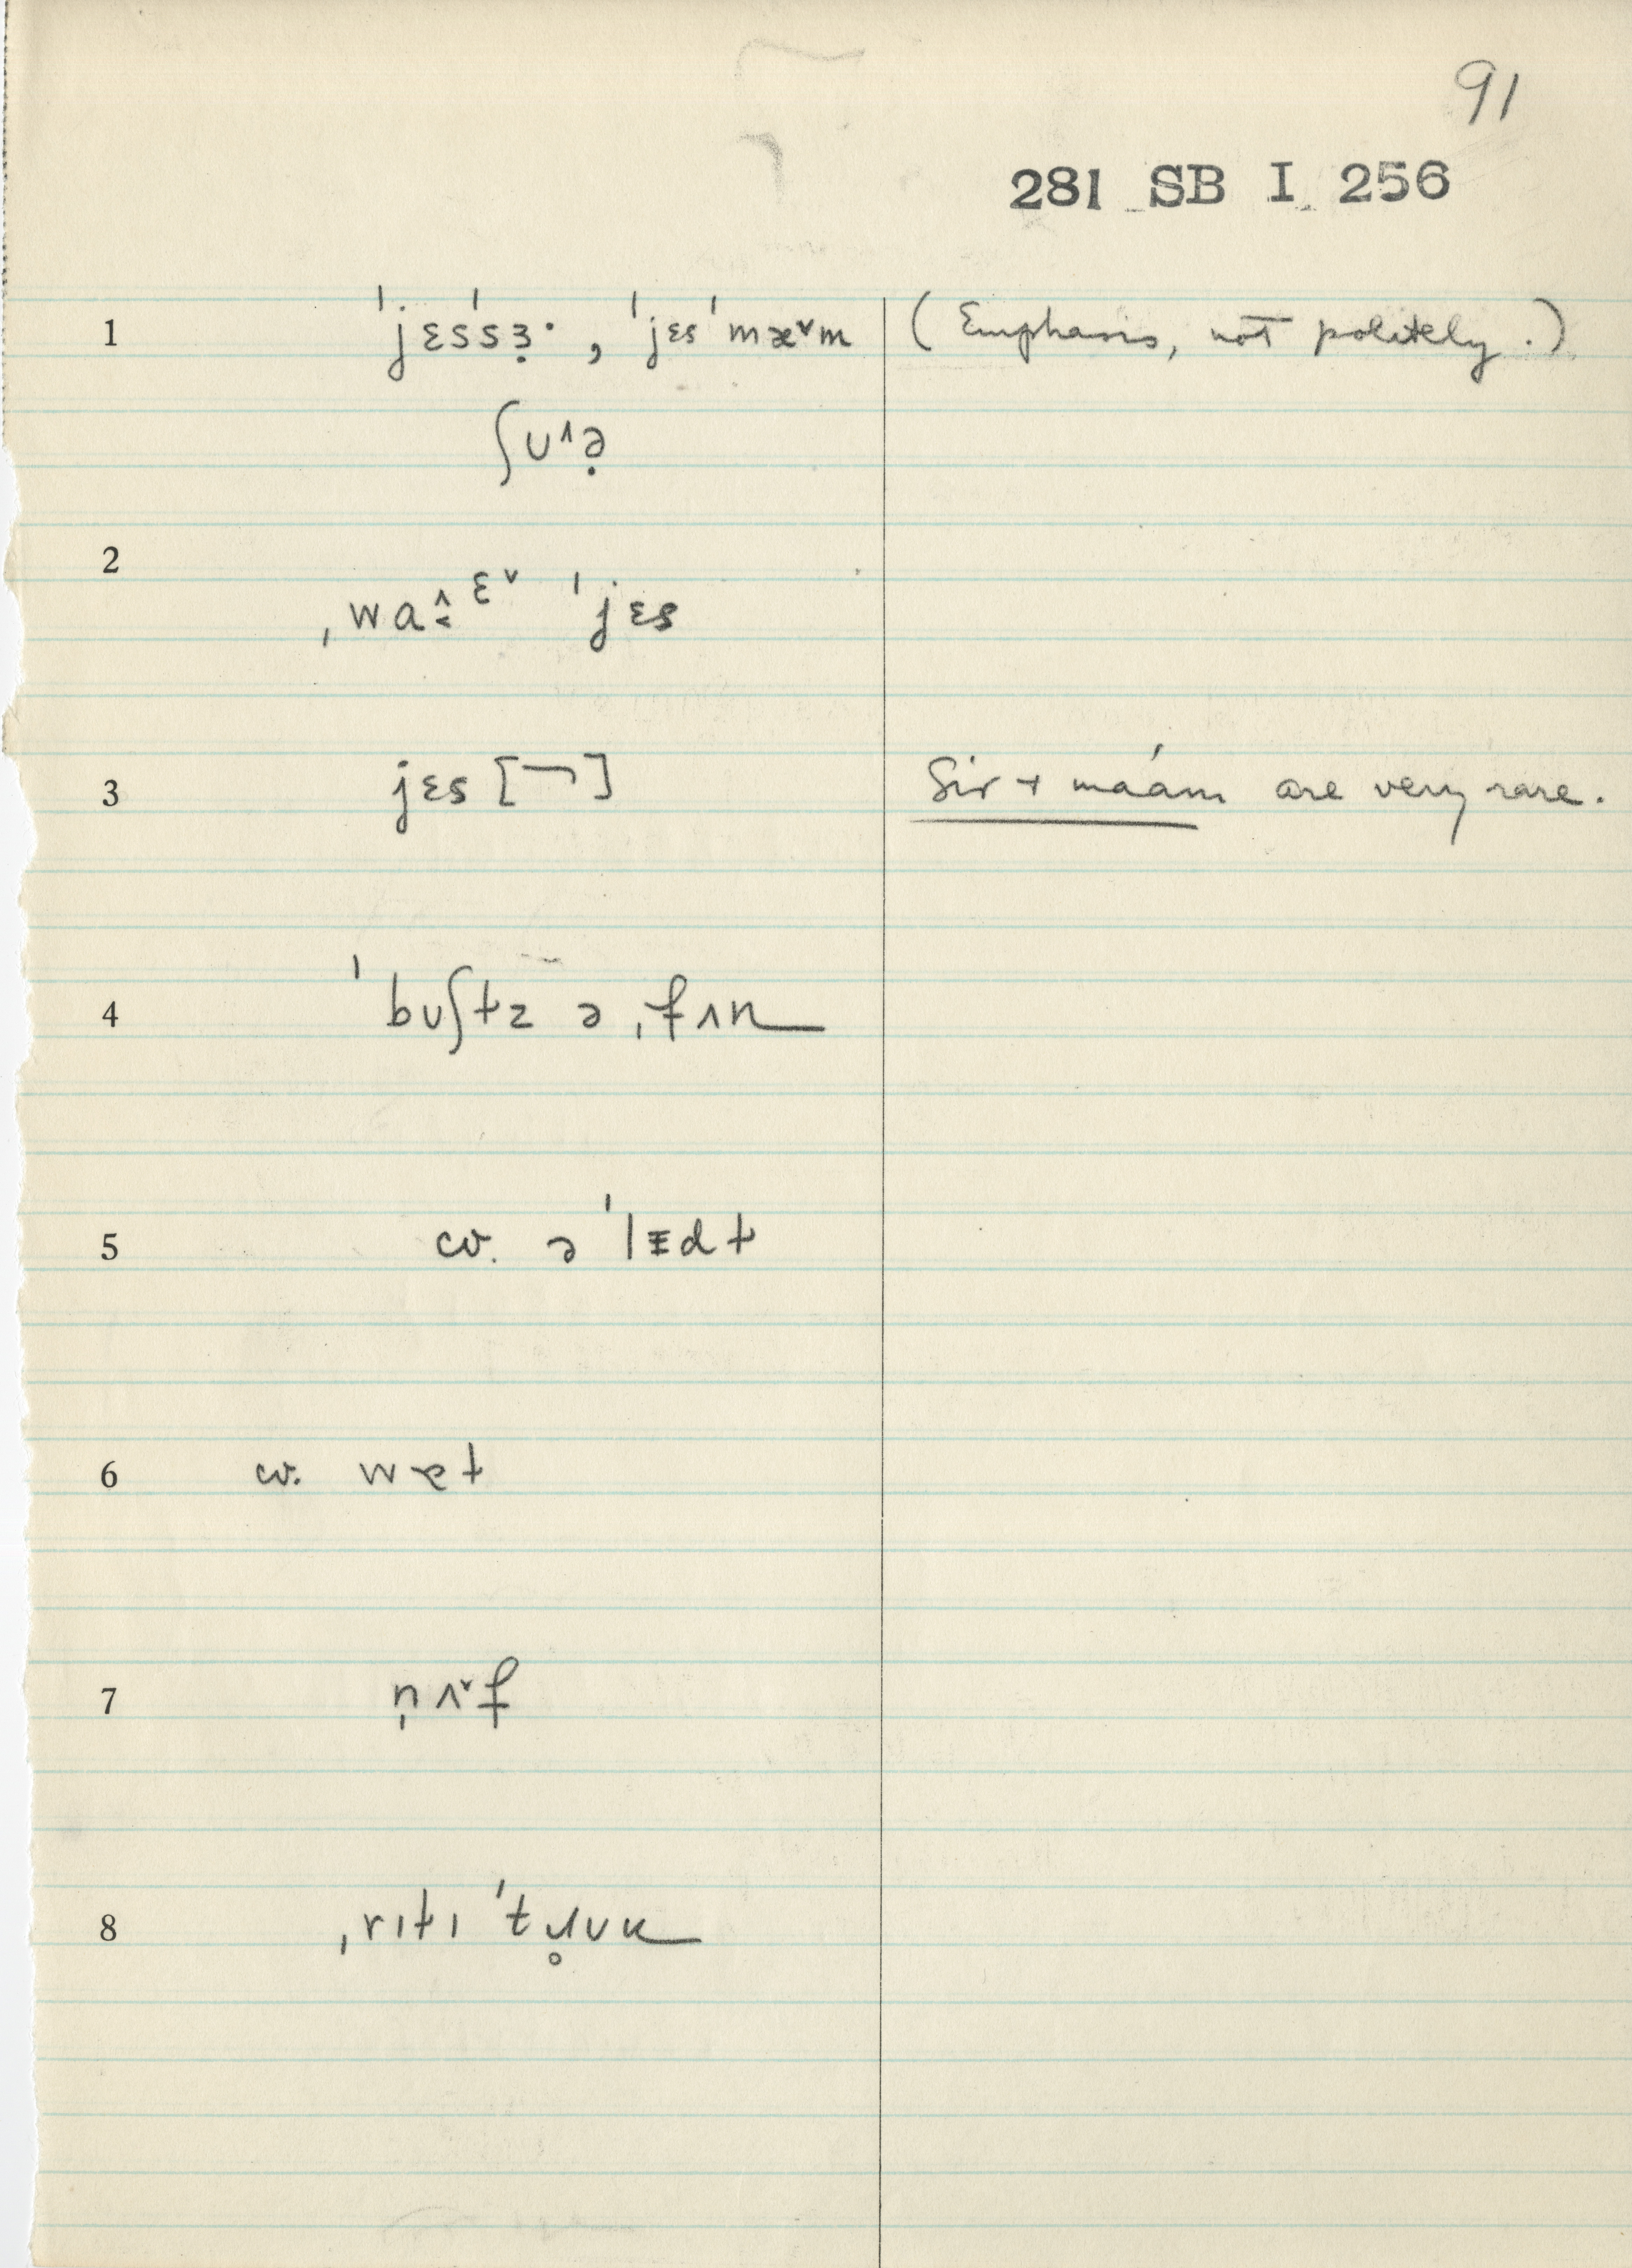 91
281 SB I 256
1 ˈjɛsˈsɜ̣·, ˈjɛsˈmæ˅m (Emphasis, not politely.)
ʃʊ˄ə̣
2 ˌwa˄ɛ˅ ˈjɛs
3 jɛs [¬] Sir + má'am are very rare.
4 ˈbuʃtz ə ˌfʌn
5 cv. ə ˈlɪdt
6 cv.
7 n̩ʌ˅f
8 ˌrɪtɪ ˈtɹ̥ʊu